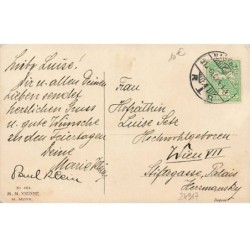 Liebe Luise!
Dir u. allen Deinen
Lieben sendet
herzlichen Gruss
u. gute Wünsche
zu den Feiertagen
Deine
Marie
Paul Klein
M. M. VIENNE.
M. MUNK
Frau
Hofräthin
Luise
Hochwohlgeboren
Wien VII
Stiftgasse, Palais
Herrmansky